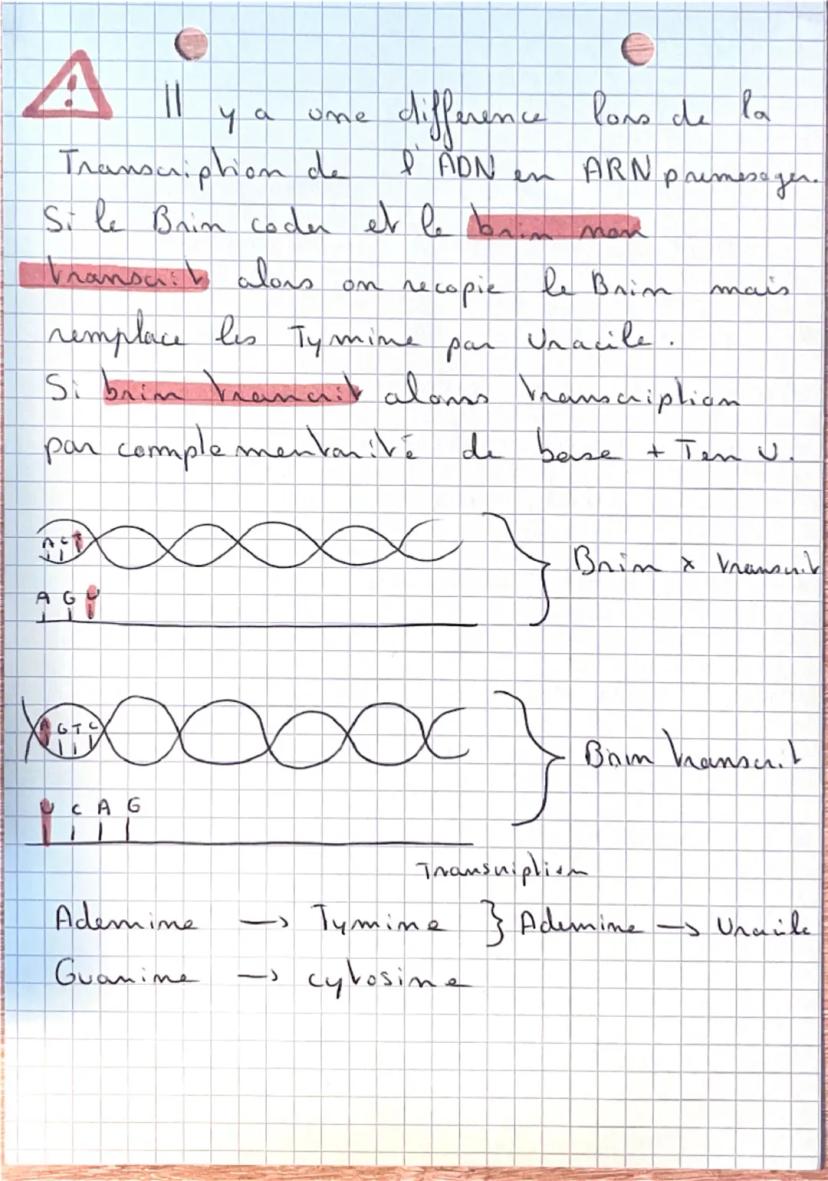 !
Il y a une difference lors de la
Transcription de l'ADN en ARN premessager.
Si le Brin coder et le brin non
transcrit alors on recopie le Brin mais
remplace les Tymine par Uracile.
Si brin trancrit alors transcription
par complementarité de base + T en U.
A G T
A G U
Brin x transcrit
A G T C
U C A G
Brin transcrit
Transcription
Adenine → Tymine } Adenine → Uracile
Guanine → cytosine